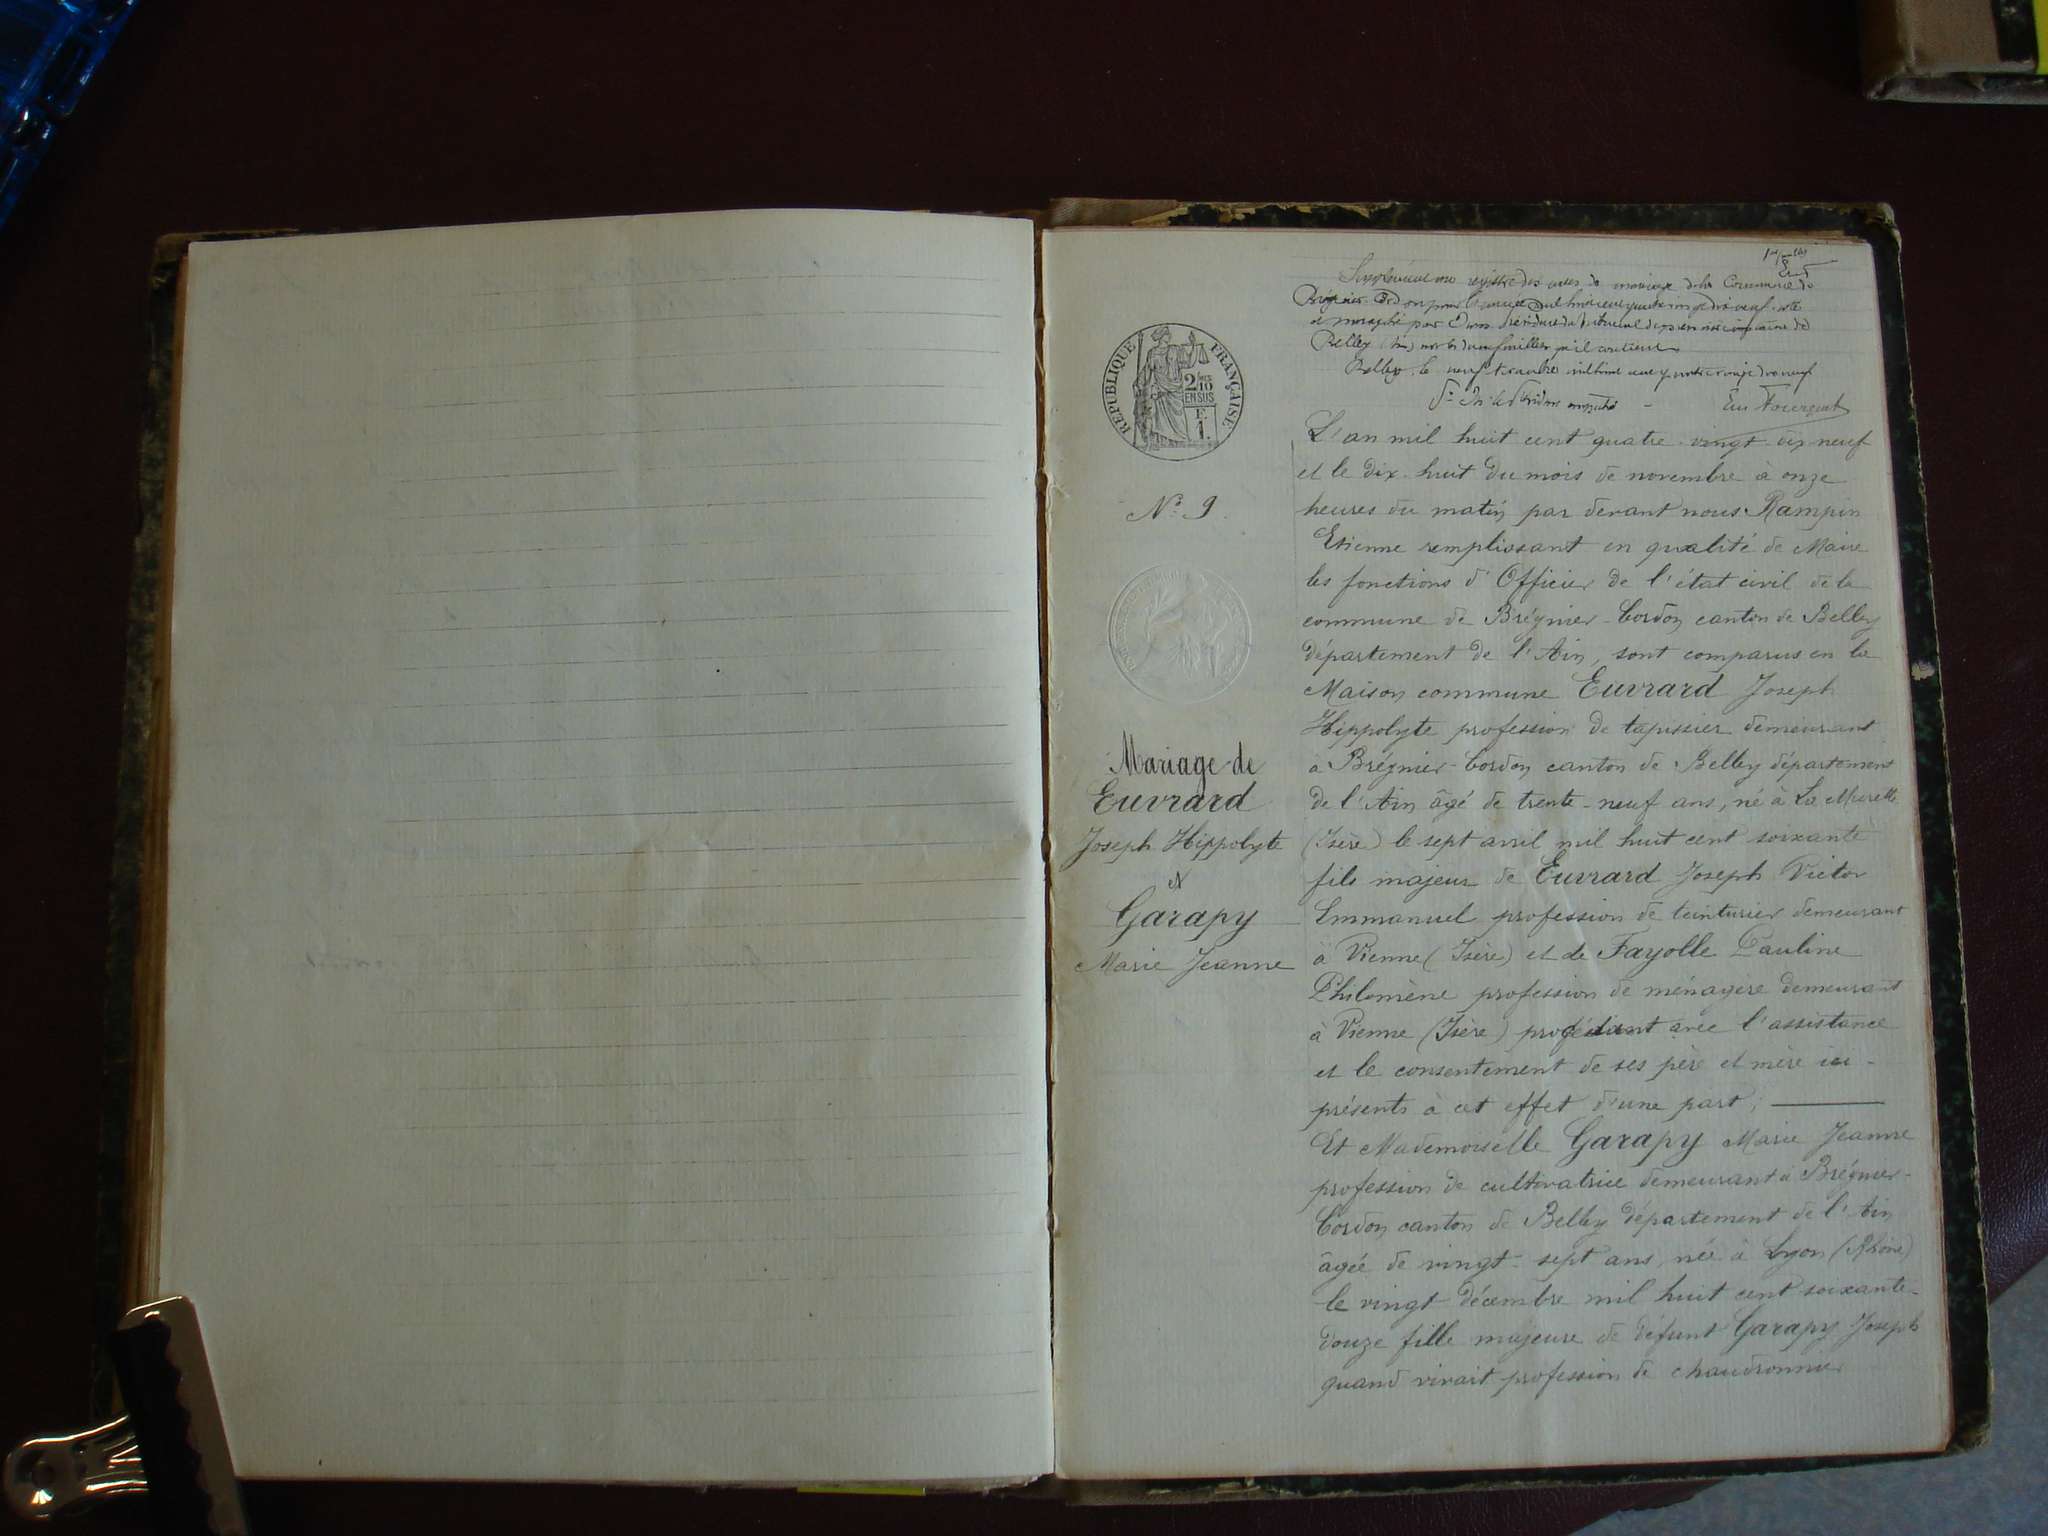 Supplément au registre des actes de mariage de la Commune de
Brégnier-Cordon pour l'année mil huit cent quatre vingt dix neuf coté
et paraphé par Nous Président du Tribunal de première instance de
Belley (Ain) sur les deux feuillets qu'il contient
Belley le neuf novembre mil huit cent quatre vingt dix neuf
RÉPUBLIQUE FRANÇAISE
2/10 EN SUS
E.
1.
L'an mil huit cent quatre-vingt-dix-neuf
et le dix-huit du mois de novembre à onze
heures du matin par devant nous Rampin
Etienne remplissant en qualité de Maire
les fonctions d'Officier de l'état civil de la
commune de Brégnier-Cordon canton de Belley
département de l'Ain, sont comparus en la
Maison commune Euvrard Joseph
Hippolyte profession de tapissier demeurant
à Brégnier-Cordon canton de Belley département
de l'Ain âgé de trente-neuf ans, né à La Murette
(Isère) le sept avril mil huit cent soixante
fils majeur de Euvrard Joseph Victor
Emmanuel profession de teinturier demeurant
à Vienne (Isère) et de Fayolle Pauline
Philomène profession de ménagère demeurant
à Vienne (Isère) procédant avec l'assistance
et le consentement de ses père et mère ici-
présents à cet effet d'une part;
Et Mademoiselle Garapy Marie Jeanne
profession de cultivatrice demeurant à Brégnier-
Cordon canton de Belley département de l'Ain
âgée de vingt-sept ans, née à Lyon (Rhône)
le vingt décembre mil huit cent soixante-
douze fille majeure de défunt Garapy Joseph
quand vivait profession de chaudronnier
N° 9.
Mariage de
Euvrard
Joseph Hippolyte
et
Garapy
Marie Jeanne